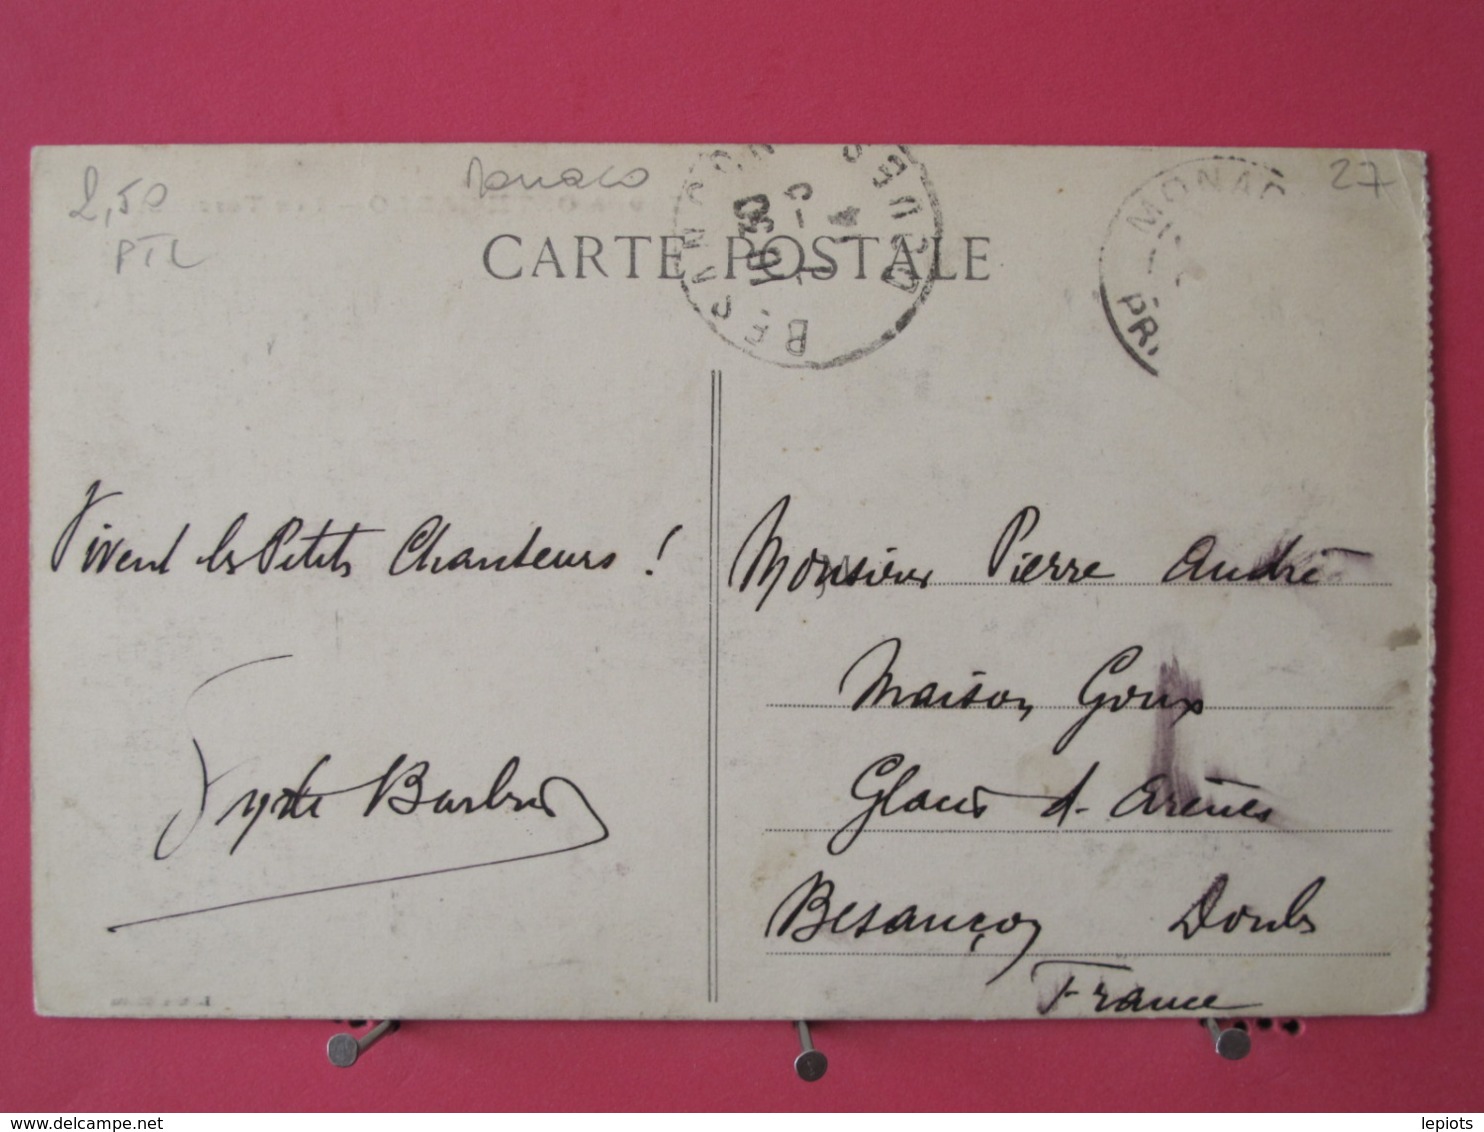 2,50
PTL
Monaco
27
CARTE POSTALE
BESANCON DOUBS
MONAC
PRI
Vivent les Petits Chanteurs !
Monsieur Pierre André
Maison Goux
Glacis d. Arènes
Besançon Doubs
France
lepiots